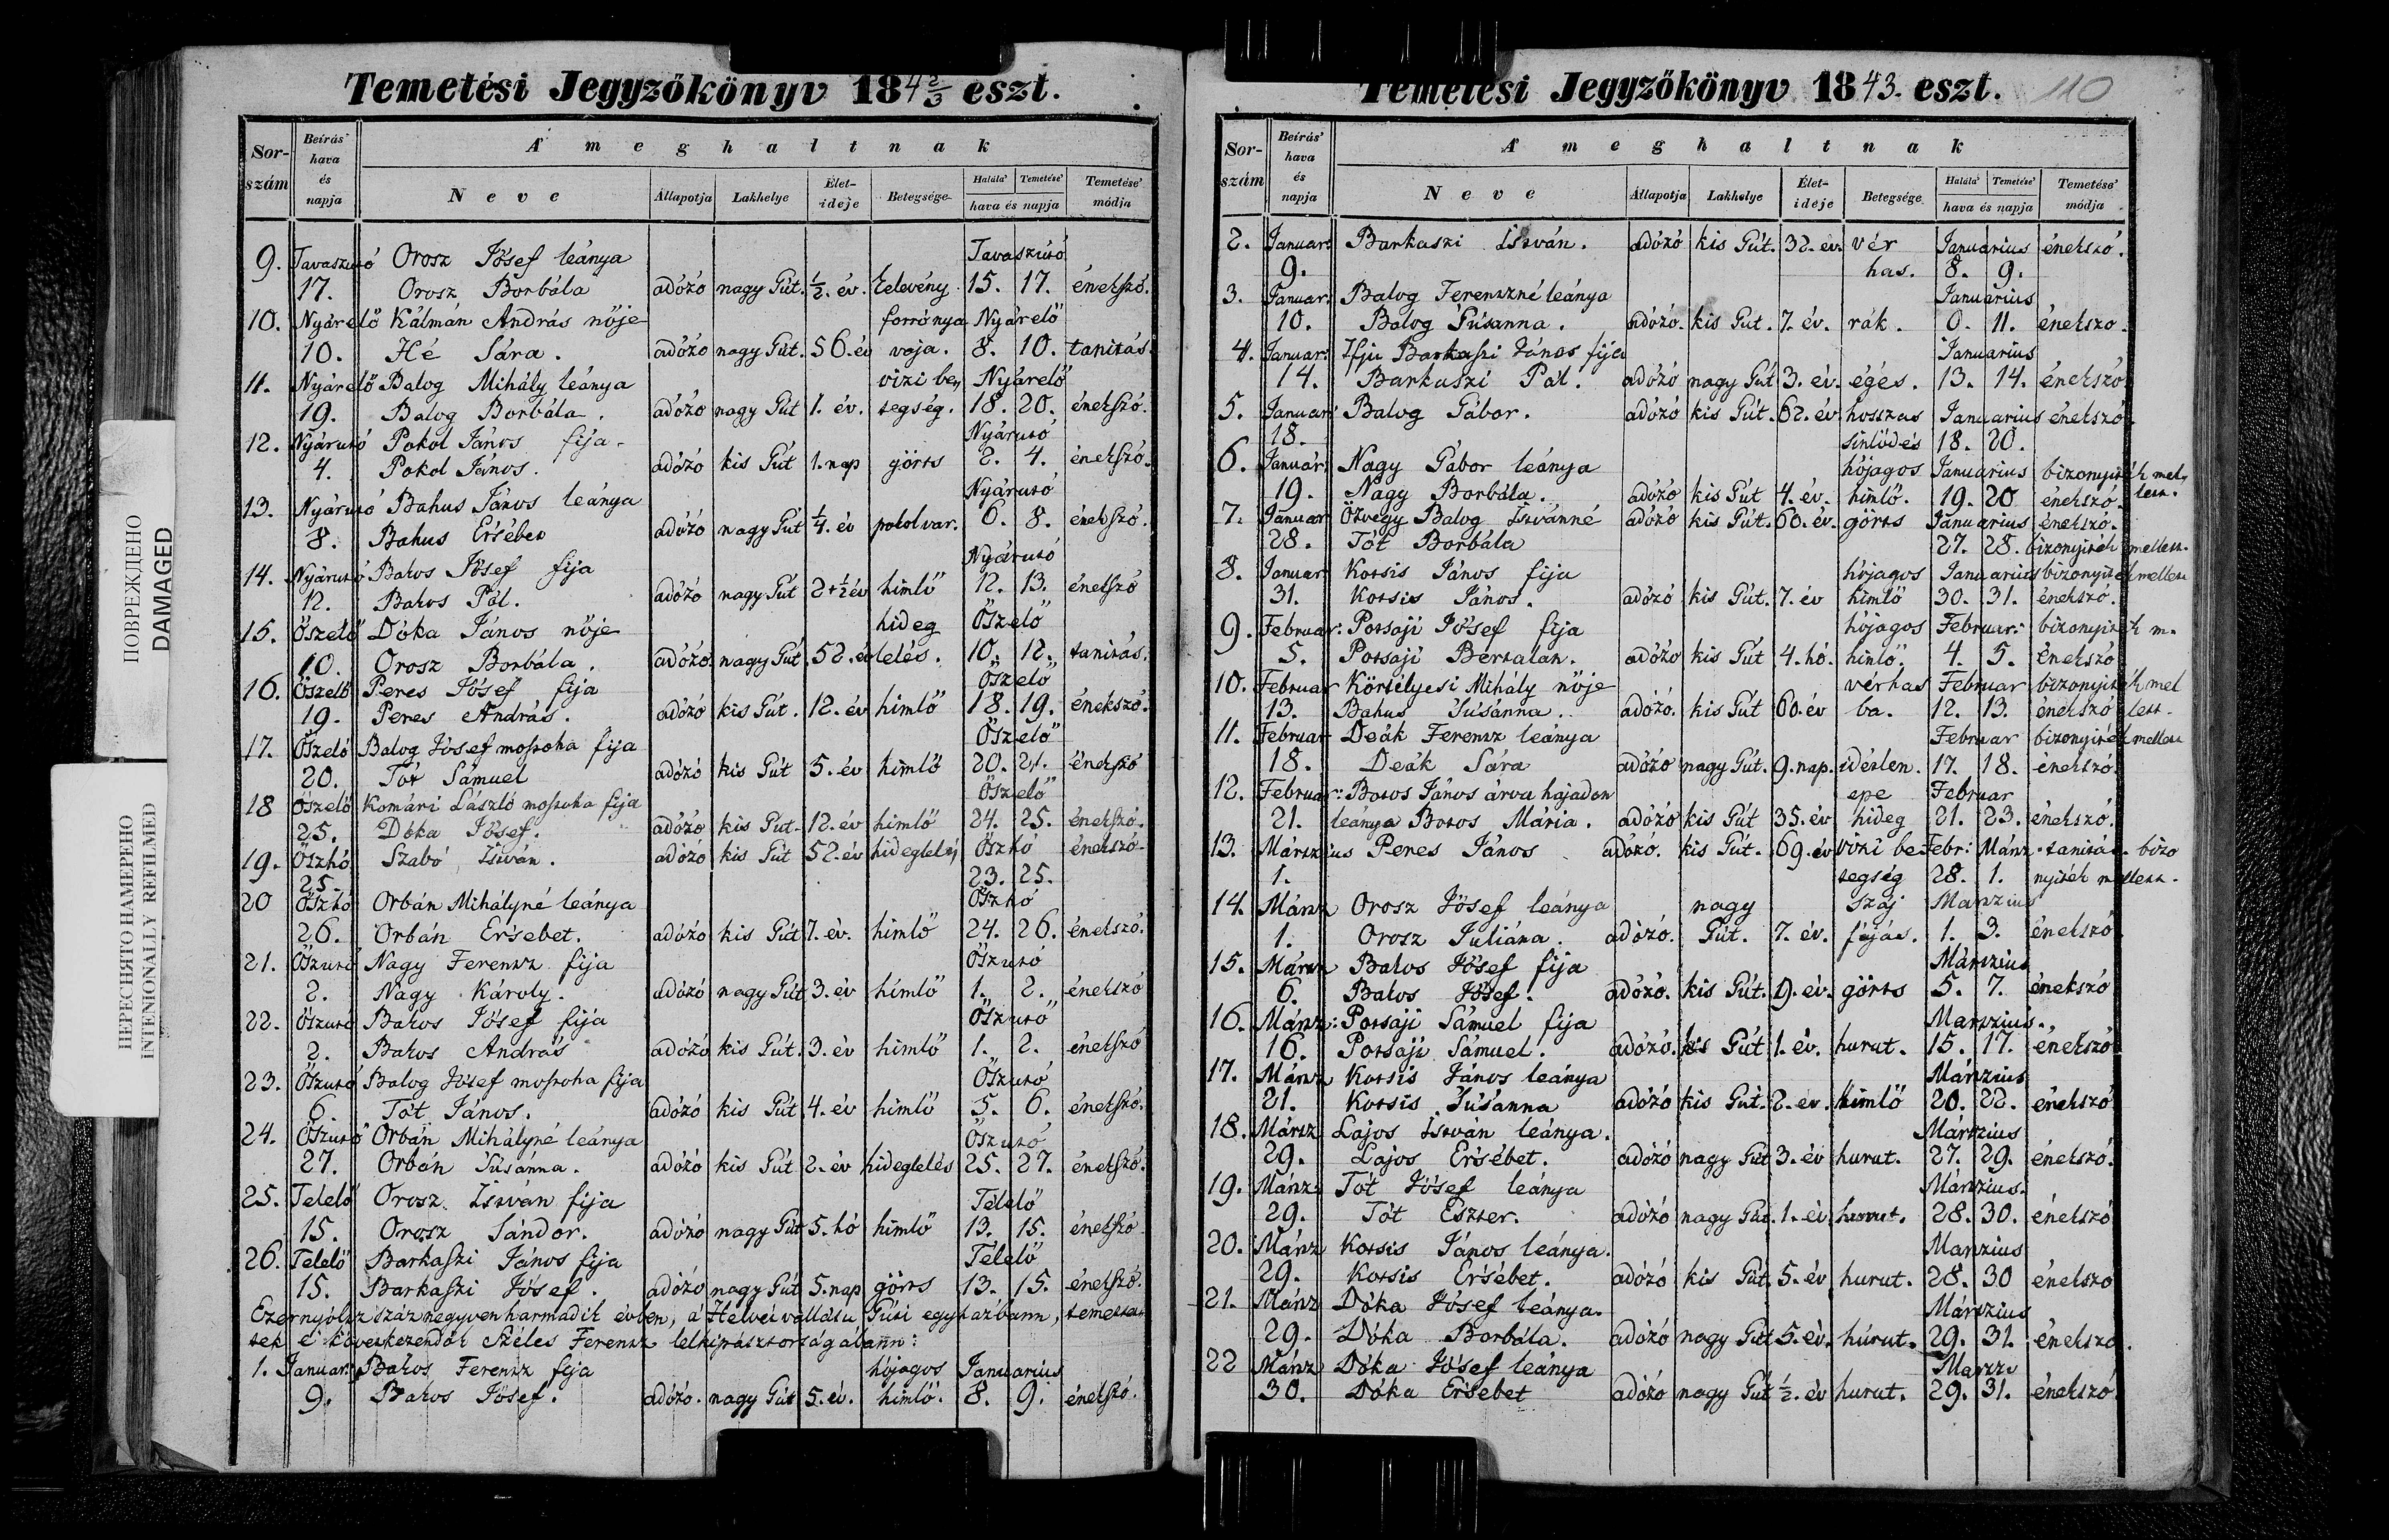 Temetési Jegyzőkönyv 184 2/3 eszt.
Sor-szám
Beírás' hava és napja
A' meghaltnak
Neve
Állapotja
Lakhelye
Élet-ideje
Betegsége
Halála' Temetése' hava és napja
Temetése' módja
9. Tavaszutó Orosz Jósef leánya Tavaszutó
17. Orosz Borbála adózó nagy Gút. ½. év. Eelevény 15. 17. énekszó.
10. Nyárelő Kálmán András nője forrónya Nyárelő
10. Hé Sára. adózó nagy Gút. 56. év vaja. 8. 10. tanitás.
11. Nyárelő Balog Mihály leánya vizi be, Nyárelő
19. Balog Borbála. adózó nagy Gút 1. év. tegség. 18. 20. énekszó.
12. Nyárutó Pokol János fija Nyárutó
4. Pokol János. adózó kis Gút 1. nap görts 2. 4. énekszó.
13. Nyárutó Bakus János leánya Nyárutó
8. Bakus Ersébet adózó nagy Gút ¼. év pokolvar. 6. 8. énekszó.
14. Nyárutó Bakos Jósef fija Nyárutó
12. Bakos Pál. adózó nagy Gút 2+½ év himlő 12. 13. énekszó
15. Őszelő Dóka János nője hideg Őszelő
10. Orosz Borbála. adózó. nagy Gút. 52. év lelés. 10. 12. tanitás.
16. Őszelő Peres Jósef fija Őszelő
19. Peres András. adózó kis Gút. 12. év himlő 18. 19. énekszó.
17. Őszelő Balog Jósef mostoha fija Őszelő
20. Tót Sámuel adózó kis Gút 5. év himlő 20. 21. énekszó
18 Őszelő Komári László mostoha fija Őszelő
25. Dóka Jósef. adózó kis Gut. 12. év himlő 24. 25. énekszó.
19. Őszhó Szabó István. adózó kis Gút 52. év hideglelés Őszhó énekszó
25. 23. 25.
20 Őszhó Orbán Mihályné leánya Őszhó
26. Orbán Ersebet. adózó kis Gút 7. év. himlő 24. 26. énekszó.
21. Őszutó Nagy Ferentz fija Őszutó
2. Nagy Károly. adózó nagy Gút 3. év himlő 1. 2. énekszó
22. Őszutó Bakos Jósef fija Őszutó
2. Bakos András adózó kis Gút. 3. év himlő 1. 2. énekszó
23. Őszutó Balog Jósef mostoha fija Őszutó
6. Tót János. adózó kis Gút 4. év himlő 5. 6. énekszó.
24. Őszutó Orbán Mihályné leánya Őszutó
27. Orbán Susánna. adózó kis Gút 2. év hideglelés 25. 27. énekszó.
25. Telelő Orosz István fija Télelő
15. Orosz Sándor. adózó nagy Gút 5. hó himlő 13. 15. énekszó
26. Telelő Barkaszi János fija Télelő
15. Barkaszi Jósef. adózó nagy Gút 5. nap görts 13. 15. énekszó.
Ezernyóltz száz negyvenharmadik évben, a' Helvét vallásu Gúti egyházbann, temettet
tek e' következendők Széles Ferentz lelkipásztorságábann:
1. Januar: Bakos Ferentz fija hójagos Januarius
9. Bakos Jósef. adózó. nagy Gút 5. év. himlő. 8. 9. énekszó.
ПОВРЕЖДЕНО
DAMAGED
ПЕРЕСНЯТО НАМЕРЕНО
INTENIONALLY REFILMED
Temetési Jegyzőkönyv 1843. eszt. 110
Sor-szám
Beírás' hava és napja
A' meghaltnak
Neve
Állapotja
Lakhelye
Élet-ideje
Betegsége
Halála' Temetése' hava és napja
Temetése' módja
2. Januar: Barkaszi István. adózó kis Gút. 32. év. vér Januarius énekszó.
9. has. 8. 9.
3. Januar: Balog Ferentzné leánya Januarius
10. Balog Súsanna. adózó. kis Gut. 7. év. rák. 0. 11. énekszo.
4. Januar: Ifju Barkaszi János fija Januarius
14. Barkaszi Pál. adózó nagy Gút 3. év. égés. 13. 14. énekszó
5. Januar: Balog Gábor. adózó kis Gút. 62. év hosszas Januarius énekszó.
18. sinlődés 18. 20.
6. Januar: Nagy Gábor leánya hójagos Januarius bizonyiték mel,
19. Nagy Borbála. adózó kis Gút 4. év. himlő. 19. 20 énekszó. lett.
7. Januar Özvegy Balog Istvánné adózó kis Gút. 60. év. görts Januarius énekszó.
28. Tót Borbála 27. 28. bizonyiték mellett.
8. Januar Kotsis János fija hójagos Januarius bizonyiték mellett
31. Kotsis János. adózó kis Gút. 7. év himlő 30. 31. énekszó.
9. Februar: Potsaji Jósef fija hójagos Februar: bizonyiték m.
5. Potsaji Bertalan. adózó kis Gút 4. hó. himlő. 4. 5. énekszó
10. Februar Körtélyesi Mihály nője vérhas Februar bizonyiték mel
13. Bakus Susánna.. adózó. kis Gút 60. év ba. 12. 13. énekszó lett.
11. Februar Deák Ferentz leánya Februar bizonyiték mellett
18. Deák Sára adózó nagy Gút. 9. nap. idétlen. 17. 18. énekszó.
12. Februar: Botos János árva hajadon epe Februar
21. leánya Botos Mária. adózó kis Gút 35. év hideg 21. 23. énekszó.
13. Mártzius Peres János adózó. kis Gút. 69. év vizi be Febr: Mártz. tanitás. bizo
1. tegség 28. 1. nyiték mellett.
14. Mártz Orosz Jósef leánya nagy száj Martzius
1. Orosz Juliána. adózó. Gút. 7. év. fájás. 1. 3. énekszó
15. Mártz Bakos Jósef fija Mártzius
6. Bakos Jósef. adózó. kis Gút. 9. év. görts 5. 7. énekszó
16. Mártz: Potsaji Sámuel fija Martzius.
16. Potsaji Sámuel. adózó. kis Gút 1. év. hurut. 15. 17. énekszó
17. Mártz Kotsis János leánya Mártzius
21. Kotsis Súsánna adózó kis Gút. 2. év. himlő 20. 22. énekszó
18. Mártz Lajos István leánya. Mártzius
29. Lajos Ersébet. adózó nagy Gút 3. év hurut. 27. 29. énekszó.
19. Mártz: Tót Jósef leánya Mártzius.
29. Tót Eszter. adózó nagy Gút. 1. év hurrut. 28. 30. énekszó
20. Mártz Kotsis János leánya. Martzius
29. Kotsis Ersébet. adózó kis Gút. 5. év hurut. 28. 30 énekszo
21. Mártz Dóka Jósef leánya. Mártzius
29. Dóka Borbála. adózó nagy Gút 5. év. húrut. 29. 31. énekszó.
22 Mártz Dóka Jósef leánya Martzi
30. Dóka Ersebet adózó nagy Gút ½. év hurut. 29. 31. énekszó.